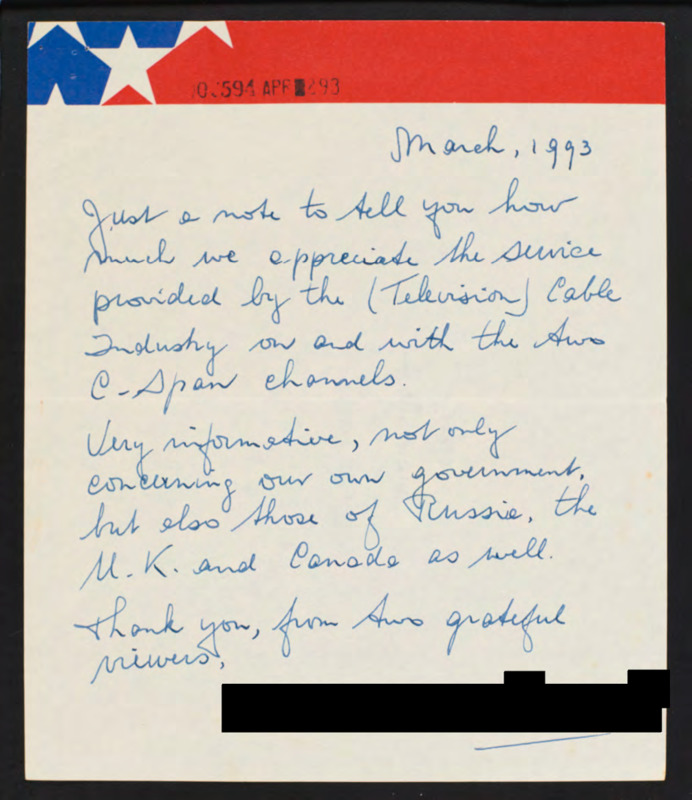 APR 93
March, 1993
Just a note to tell you how
much we appreciate the service
provided by the (Television) Cable
Industry on and with the two
C-Span channels.
Very informative, not only
concerning our own government,
but also those of Russia, the
U.K. and Canada as well.
Thank you, from two grateful
viewers,